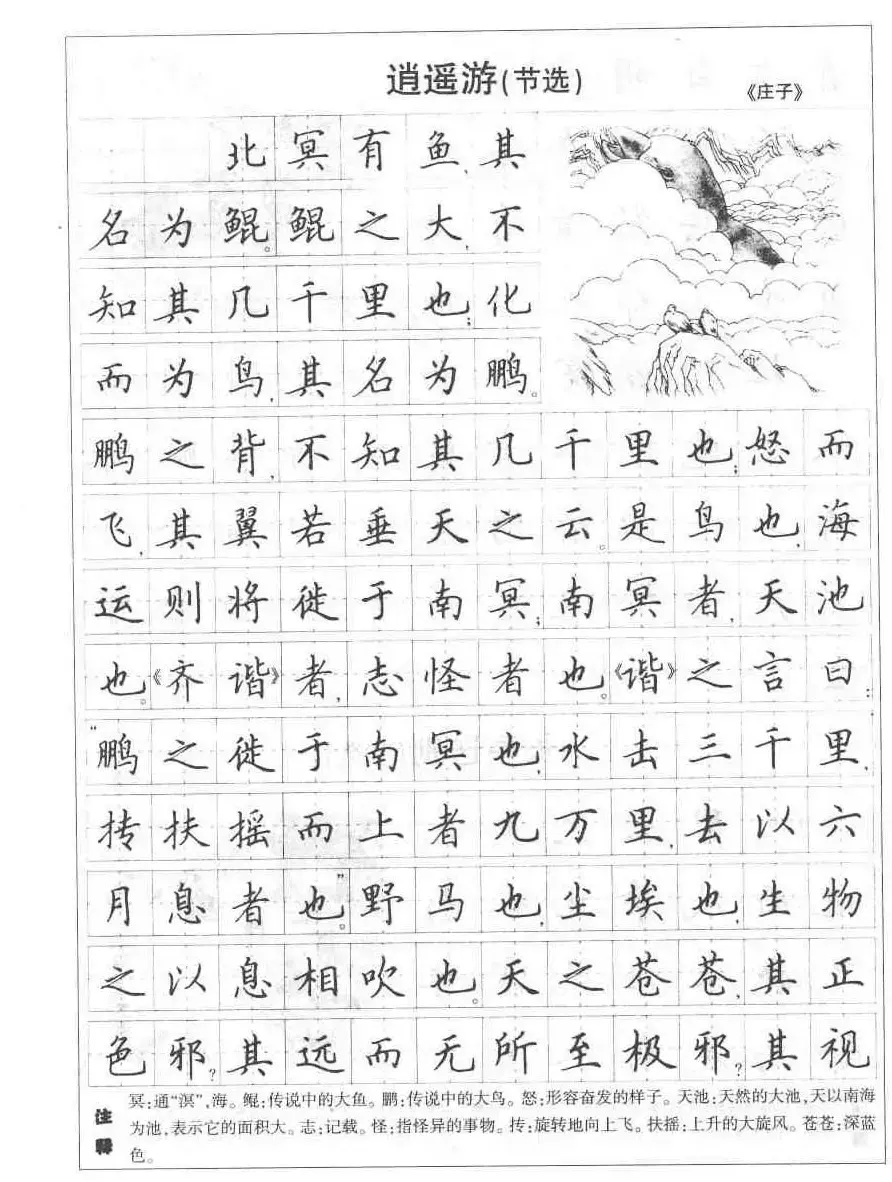 逍遥游(节选)
《庄子》
北冥有鱼,其
名为鲲。鲲之大,不
知其几千里也;化
而为鸟,其名为鹏。
鹏之背,不知其几千里也;怒而
飞,其翼若垂天之云。是鸟也,海
运则将徙于南冥;南冥者,天池
也。《齐谐》者,志怪者也。《谐》之言曰:
“鹏之徙于南冥也,水击三千里,
抟扶摇而上者九万里,去以六
月息者也。”野马也,尘埃也,生物
之以息相吹也。天之苍苍,其正
色邪?其远而无所至极邪?其视
注释
冥:通“溟”,海。鲲:传说中的大鱼。鹏:传说中的大鸟。怒:形容奋发的样子。天池:天然的大池,天以南海
为池,表示它的面积大。志:记载。怪:指怪异的事物。抟:旋转地向上飞。扶摇:上升的大旋风。苍苍:深蓝
色。